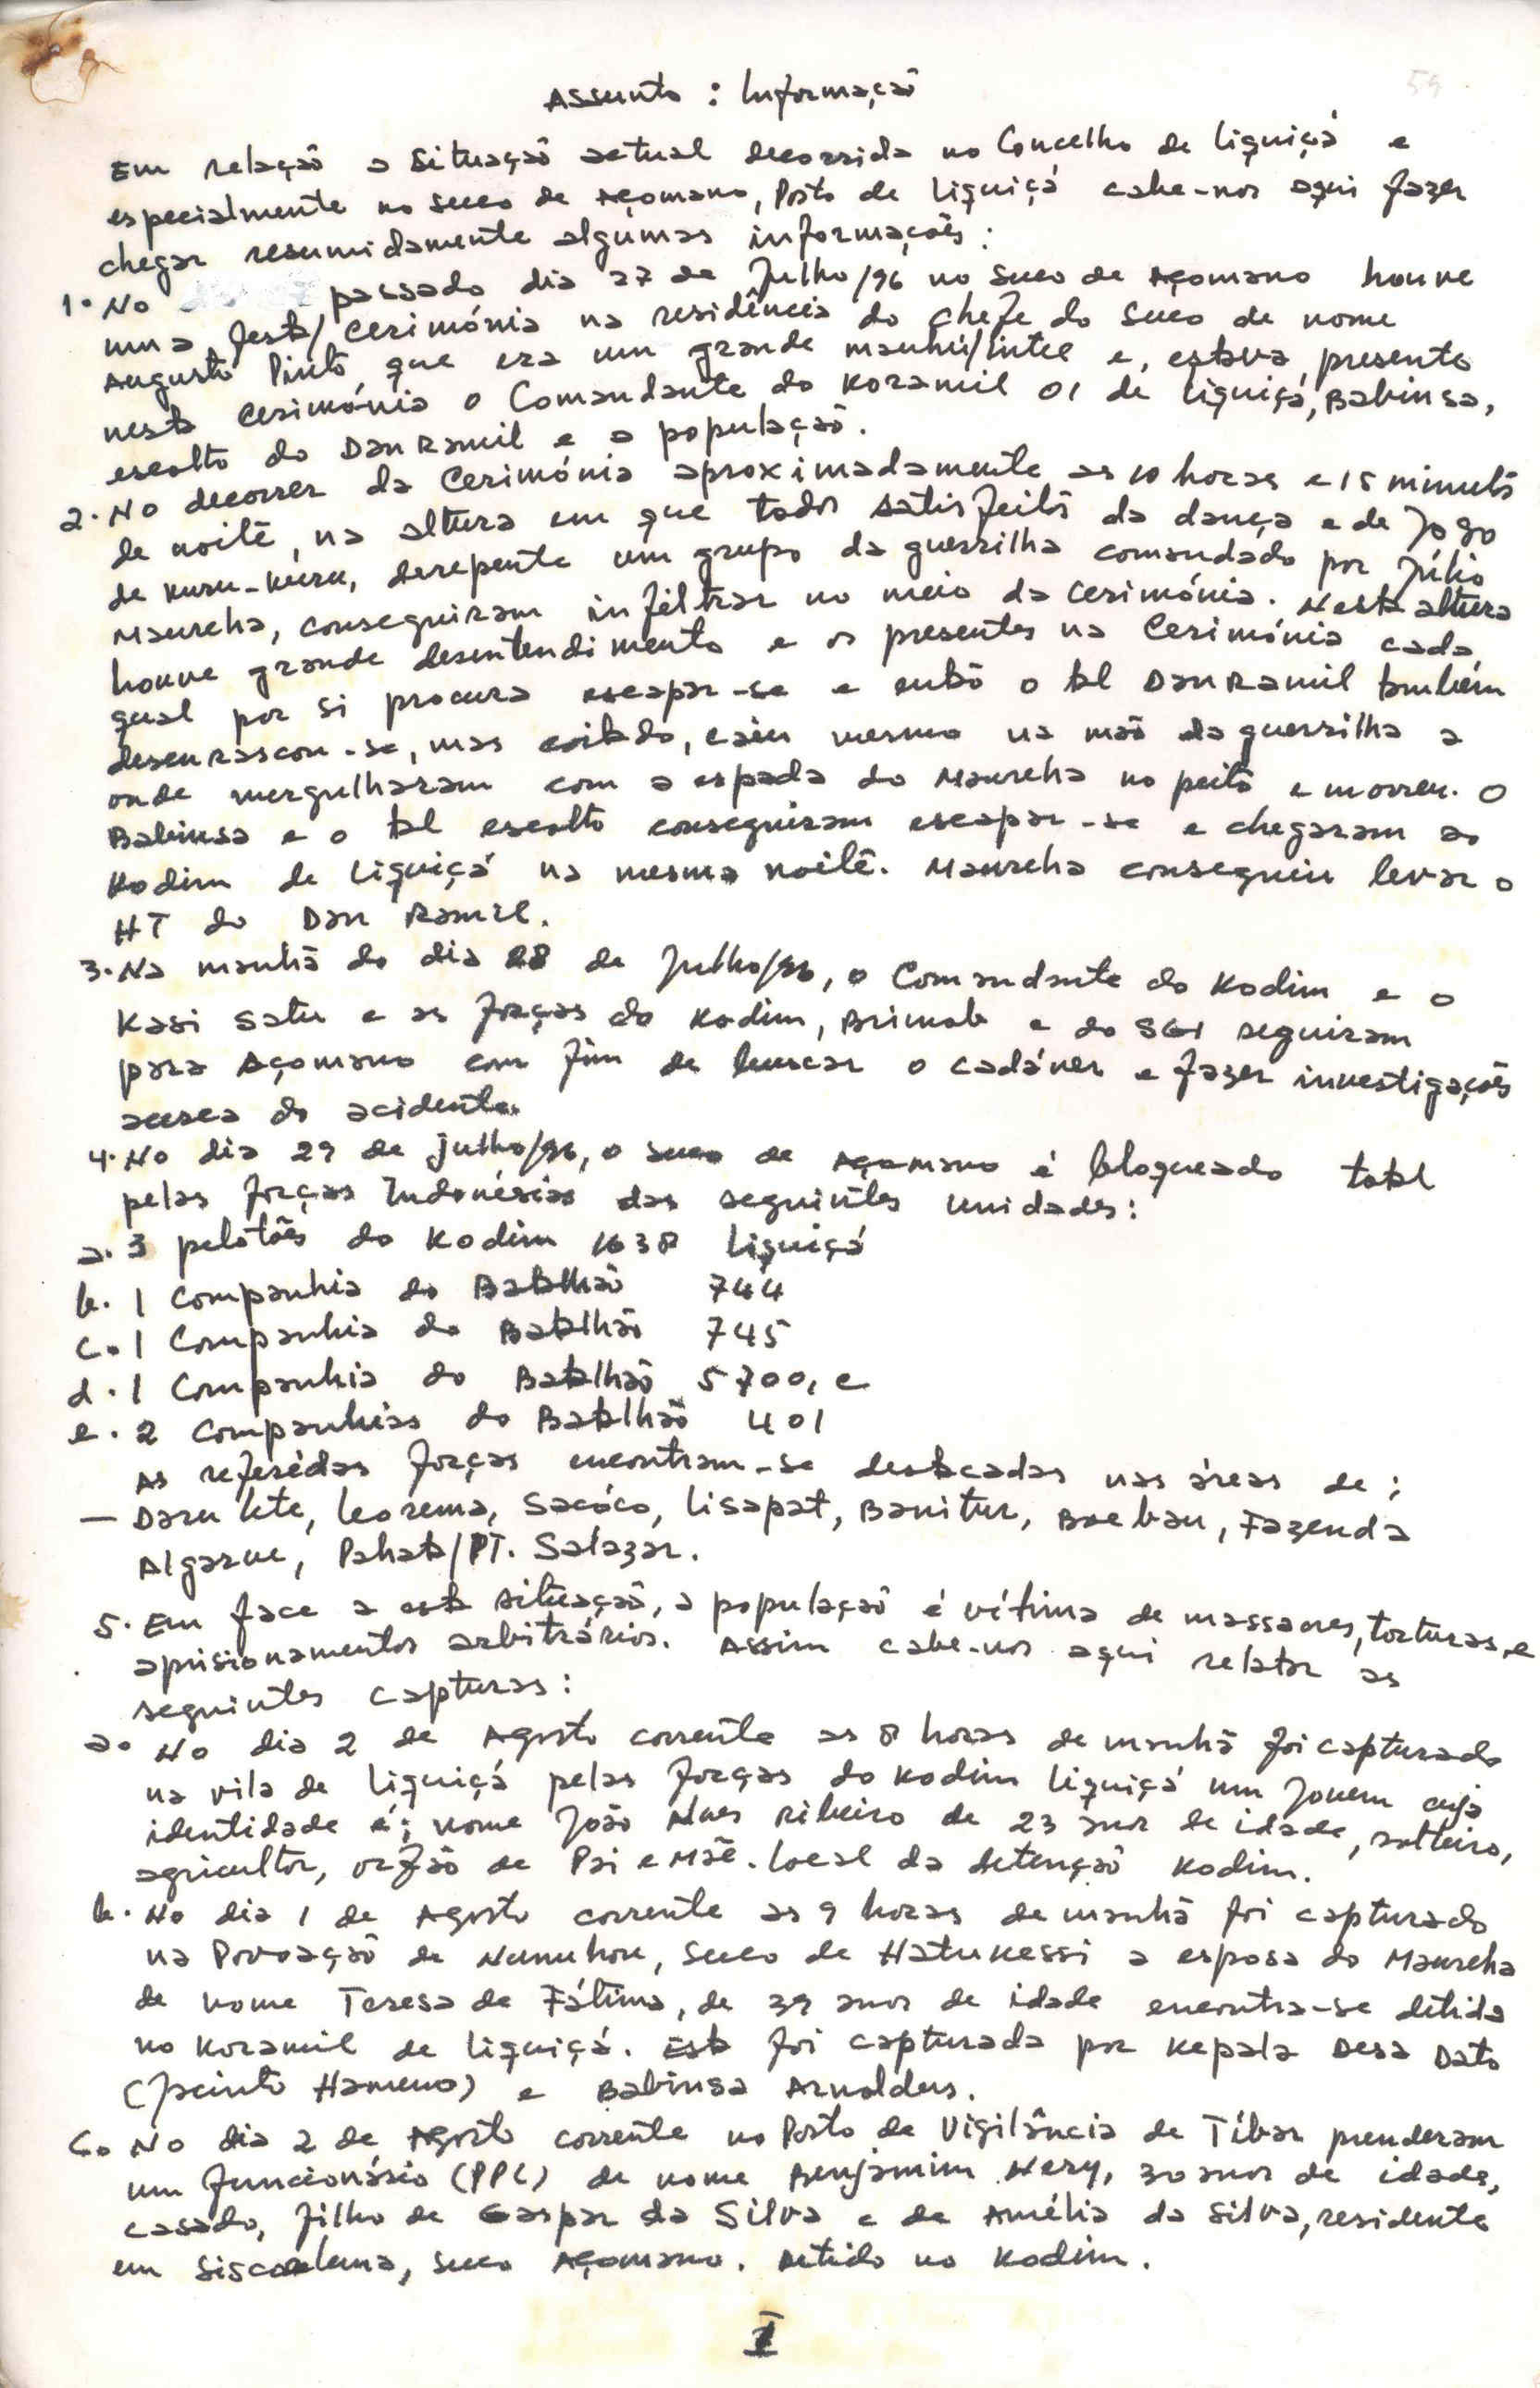 59
Assunto : Informação
Em relação a situação actual decorrida no Concelho de Liquiçá e
especialmente no suco de Açomano, Posto de Liquiçá cabe-nos aqui fazer
chegar resumidamente algumas informações :
1. No passado dia 27 de Julho/96 no suco de Açomano houve
uma festa/cerimónia na residência do chefe do suco de nome
Augusto Pinto, que era um grande mauhú/intel e, estava presente
nesta cerimónia o Comandante do Koramil 01 de Liquiçá, Babinsa,
escolto do DanRamil e a população.
2. No decorrer da Cerimónia aproximadamente as 10 horas e 15 minutos
de noite, na altura em que todos satisfeitos da dança e de Jogo
de kuru-kuru, derepente um grupo da guerrilha comandado por Júlio
Maureha, conseguiram infiltrar no meio da cerimónia. Nesta altura
houve grande desentendimento e os presentes na Cerimónia cada
qual por si procura escapar-se e entõ o tal DanRamil também
desenrascou-se, mas coitado, caiu mesmo na mão da guerrilha a
onde mergulharam com a espada do Maureha no peito e morreu. O
Babinsa e o tal escolto conseguiram escapar-se e chegaram ao
Kodim de Liquiçá na mesma noite. Maureha conseguiu levar o
HT do Dan Ramil.
3. Na manhã do dia 28 de Julho/96, o Comandante do Kodim e o
Kasi satu e as forças do Kodim, Brimob e do SGI seguiram
para Açomano com fim de buscar o cadáver e fazer investigações
acerca do acidente.
4. No dia 29 de julho/96, o suco de Açomano é bloqueado total
pelas forças Indonésias das seguintes unidades :
a. 3 pelotões do Kodim 1638 Liquiçá
b. 1 Companhia do Batalhão 744
c. 1 Companhia do Batalhão 745
d. 1 Companhia do Batalhão 5700, e
e. 2 Companhias do Batalhão 401
As referidas forças encontram-se destacadas nas áreas de ;
— Daru lete, Leorema, Sacóco, Lisapat, Banitur, Boebau, Fazenda
Algarve, Pahata/PT. Salazar.
5. Em face a esta situação, a população é vítima de massacres, torturas, e
aprisionamentos arbitrários. Assim cabe-nos aqui relatar as
seguintes capturas :
a. No dia 2 de Agosto corrente as 8 horas de manhã foi capturado
na vila de Liquiçá pelas forças do Kodim Liquiçá um Jovem cuja
identidade é ; nome João Alves Ribeiro de 23 anos de idade, solteiro,
agricultor, orfão de Pai e Mãe. Local da detenção Kodim.
b. No dia 1 de Agosto corrente as 9 horas de manhã foi capturado
na Povoação de Nunuhou, suco de Hatukessi a esposa do Maureha
de nome Teresa de Fátima, de 39 anos de idade encontra-se detida
no Koramil de Liquiçá. Esta foi capturada por Kepala Desa Dato
(Jacinto Hameno) e Babinsa Arnoldus.
c. No dia 2 de Agosto corrente no Posto de Vigilância de Tíbar prenderam
um funcionário (PPL) de nome Benjamim Nery, 30 anos de idade,
casado, filho de Gaspar da Silva e de Amélia da Silva, residente
em, suco Açomano. Detido no Kodim.
I